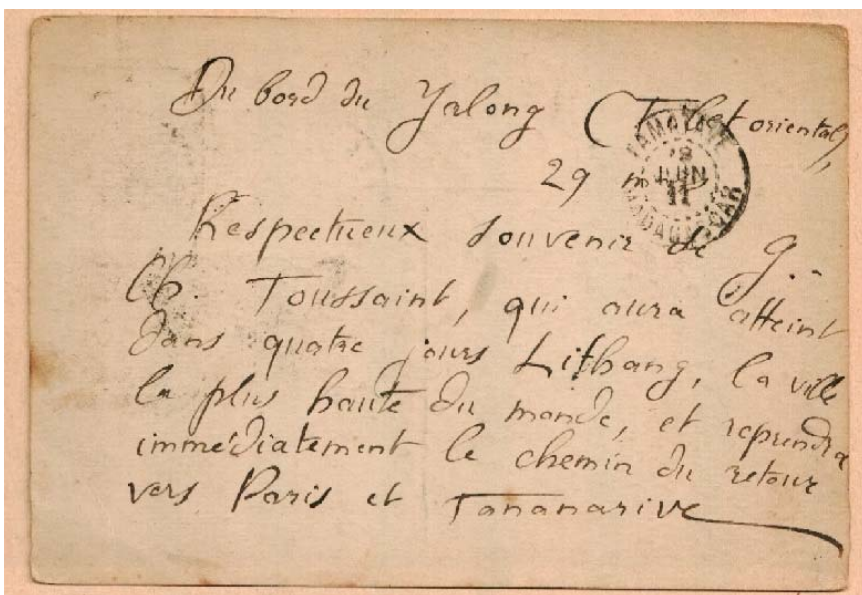 Du bord du Yalong (Thibet oriental),
29
TAMATAVE
JUIN
11
MADAGASCAR
Respectueux souvenir de G.-
Ch. Toussaint, qui aura atteint
dans quatre jours Lithang, la ville
la plus haute du monde, et reprendra
immédiatement le chemin du retour
vers Paris et Tananarive